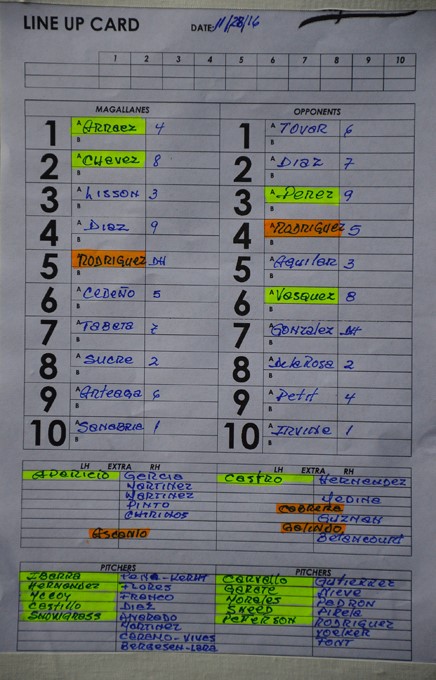 LINE UP CARD DATE: 11/28/16
1 2 3 4 5 6 7 8 9 10
MAGALLANES OPPONENTS
1 A Arraez 4 B 1 A Tovar 6 B
2 A Chavez 8 B 2 A Diaz 7 B
3 A Lisson 3 B 3 A Perez 9 B
4 A Diaz 9 B 4 A Rodriguez 5 B
5 A Rodriguez DH B 5 A Aguilar 3 B
6 A Cedeño 5 B 6 A Vasquez 8 B
7 A Tabata 7 B 7 A Gonzalez DH B
8 A Sucre 2 B 8 A De la Rosa 2 B
9 A Arteaga 6 B 9 A Petit 4 B
10 A Sanabria 1 B 10 A Irvine 1 B
LH EXTRA RH LH EXTRA RH
Aparicio Garcia Castro Hernandez
Martinez
Martinez Medina
Pinto Cabrera
Chirinos Guzman
Ascanio Galindo
Betancourt
PITCHERS PITCHERS
Ibarra Peña-Kerim Carvallo Gutierrez
Hernandez Flores Garate Nieve
McCoy Franco Morales Padron
Castillo Diaz Sneed Pirela
Snodgrass Andrado Petterson Rodriguez
Martinez Voelker
Caramo-Vives Font
Bergesen-Lara